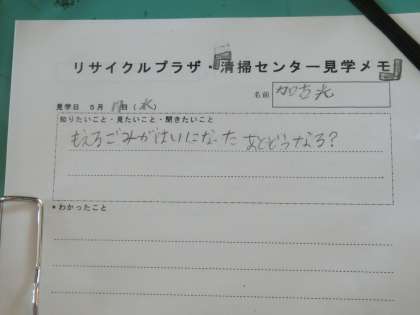 リサイクルプラザ・『清掃センター見学メモ』
名前 加古光
見学日 5月 17日(水)
知りたいこと・見たいこと・聞きたいこと
もえるごみがはいになったあとどうなる?
*わかったこと